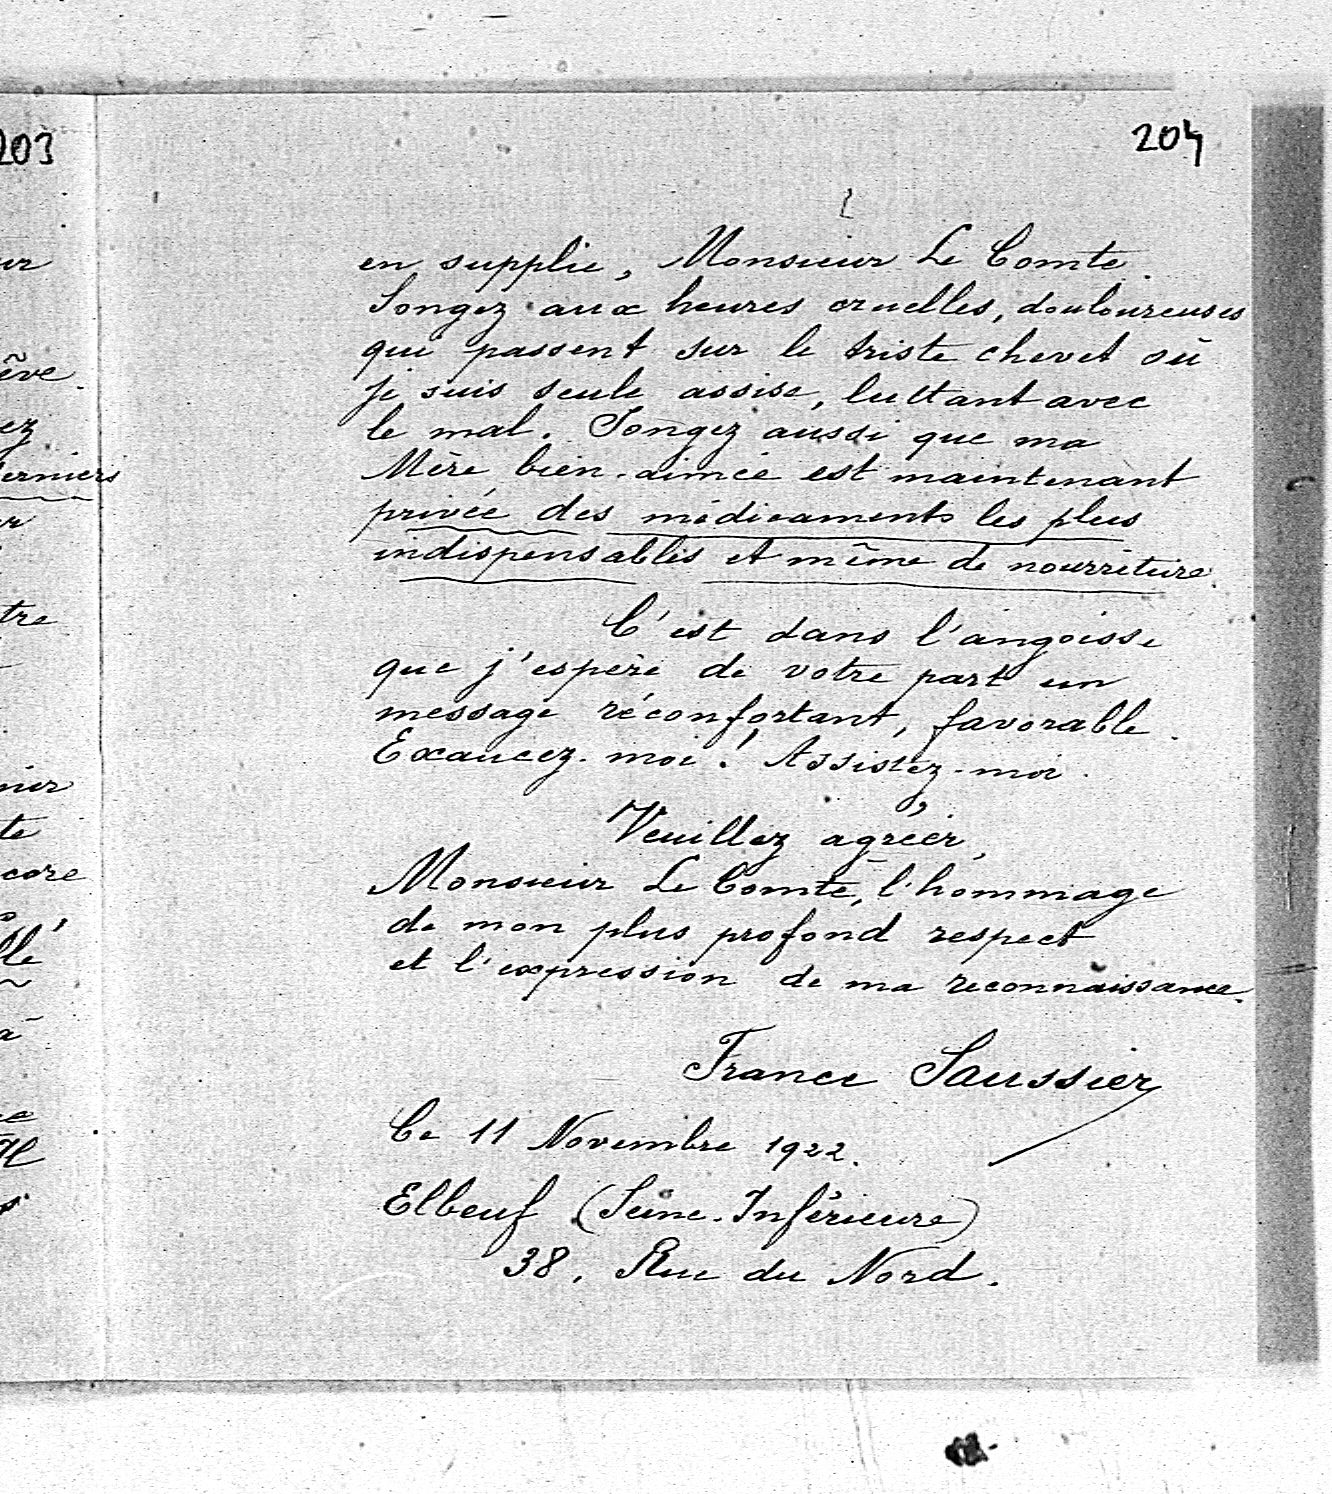 203
204
ur
ève
ez
derniers
tre
nier
te
core
llé
en supplie, Monsieur Le Comte.
Songez aux heures cruelles, douloureuses
qui passent sur le triste chevet où
je suis seule assise, luttant avec
le mal. Songez aussi que ma
Mère bien-aimée est maintenant
privée des médicaments les plus
indispensables et même de nourriture.
C'est dans l'angoisse
que j'espère de votre part un
message réconfortant, favorable.
Exaucez-moi ! Assistez-moi.
Veuillez agréer,
Monsieur Le Comte, l'hommage
de mon plus profond respect
et l'expression de ma reconnaissance.
France Saussier
Ce 11 Novembre 1922.
Elbeuf (Seine-Inférieure)
38, Rue du Nord.